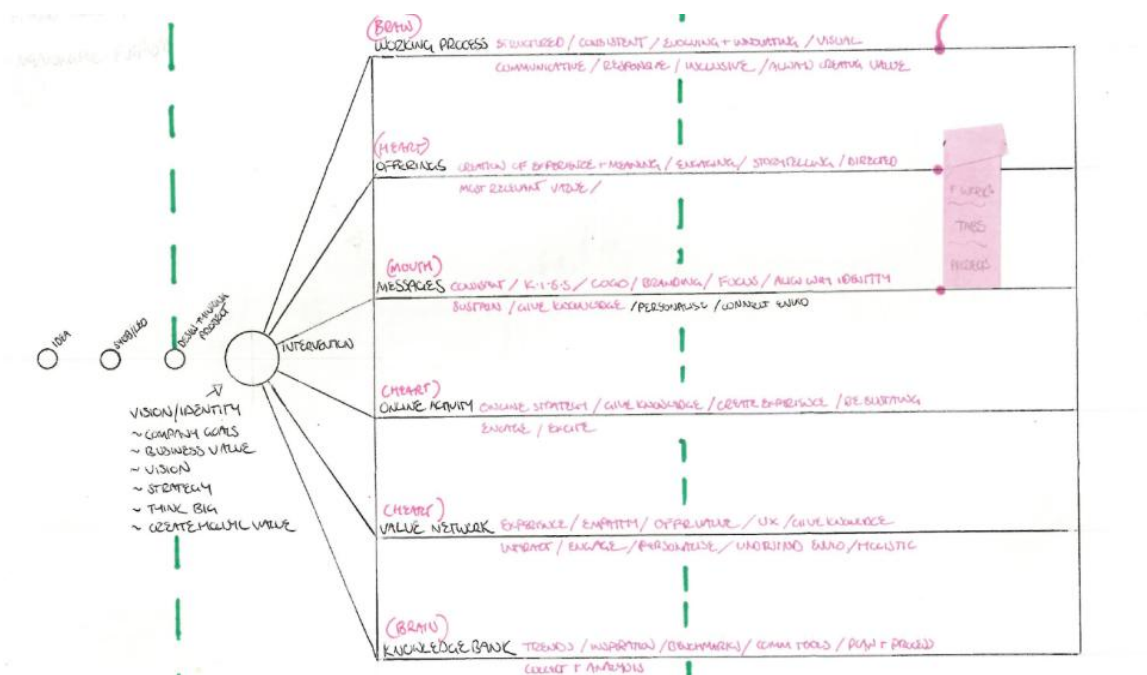 (BRAIN)
WORKING PROCESS STRUCTURED / CONSISTENT / EVOLVING + INNOVATING / VISUAL
COMMUNICATIVE / RESPONSIVE / INCLUSIVE / ALWAYS CREATING VALUE
(HEART)
OFFERINGS CREATION OF EXPERIENCE + MEANING / ENGAGING / STORYTELLING / DIRECTED
MOST RELEVANT VALUE /
TABS
(MOUTH)
MESSAGES CONSTANT / K.I.S.S / LOGO / BRANDING / FOCUS / ALIGN WITH IDENTITY
SUSTAIN / GIVE KNOWLEDGE / PERSONALISE / CONNECT
IDEA
DESIGN
PROJECT
INTERVENTION
VISION/IDENTITY
~ COMPANY GOALS
~ BUSINESS VALUE
~ VISION
~ STRATEGY
~ THINK BIG
~ CREATE VALUE
(HEART)
ONLINE ACTIVITY ONLINE STRATEGY / GIVE KNOWLEDGE / CREATE EXPERIENCE /
ENGAGE / EXCITE
(HEART)
VALUE NETWORK EXPERIENCE / EMPATHY / OFFER VALUE / UX / GIVE KNOWLEDGE
INTERACT / ENGAGE / PERSONALISE / HOLISTIC
(BRAIN)
KNOWLEDGE BANK TRENDS / INSPIRATION / BENCHMARKS / COMM TOOLS / PLAN + PROCESS
COLLECT + ANALYSIS